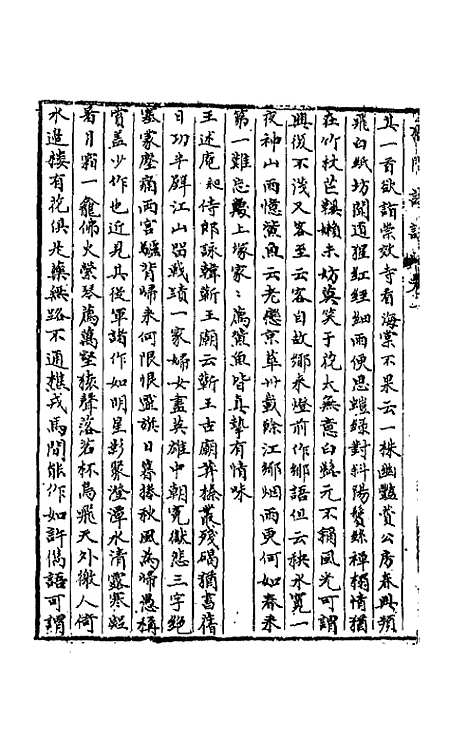 其一首欲詣崇效寺看海棠不果云一株幽豔賞公房春興頻
飛白紙坊聞道猩紅經細雨便思螘綠對斜陽鬢絲禪榻情猶
在竹杖芒鞵嬾未坊莫笑于花太無意白髮元不稱風光可謂
興復不淺又客至云客自故鄉來燈前作鄉語但云秧水寬一
夜神山雨憶黃魚云老戀京華卅載餘江鄉烟雨更何如春來
第一難忘處上塚家〻薦黃魚皆真摯有情味
王述庵昶侍郎詠韓蘄王廟云蘄王古廟莽榛叢殘碣猶書舊
日功半壁江山留戰蹟一家婦女盡英雄中朝冤獄悲三字絕
塞蒙塵痛兩宮騎背歸來何限恨靈旗日暮捲秋風為歸愚稱
賞蓋少作也近見其從軍諸作如明星影聚澄潭水清露寒凝
暑月霜一龕佛火縈琴薦萬壑猿聲落茗杯烏飛天外徵人倚
水邊樓有花俱北藥無路不通樵戎馬間能作如許儁語可謂